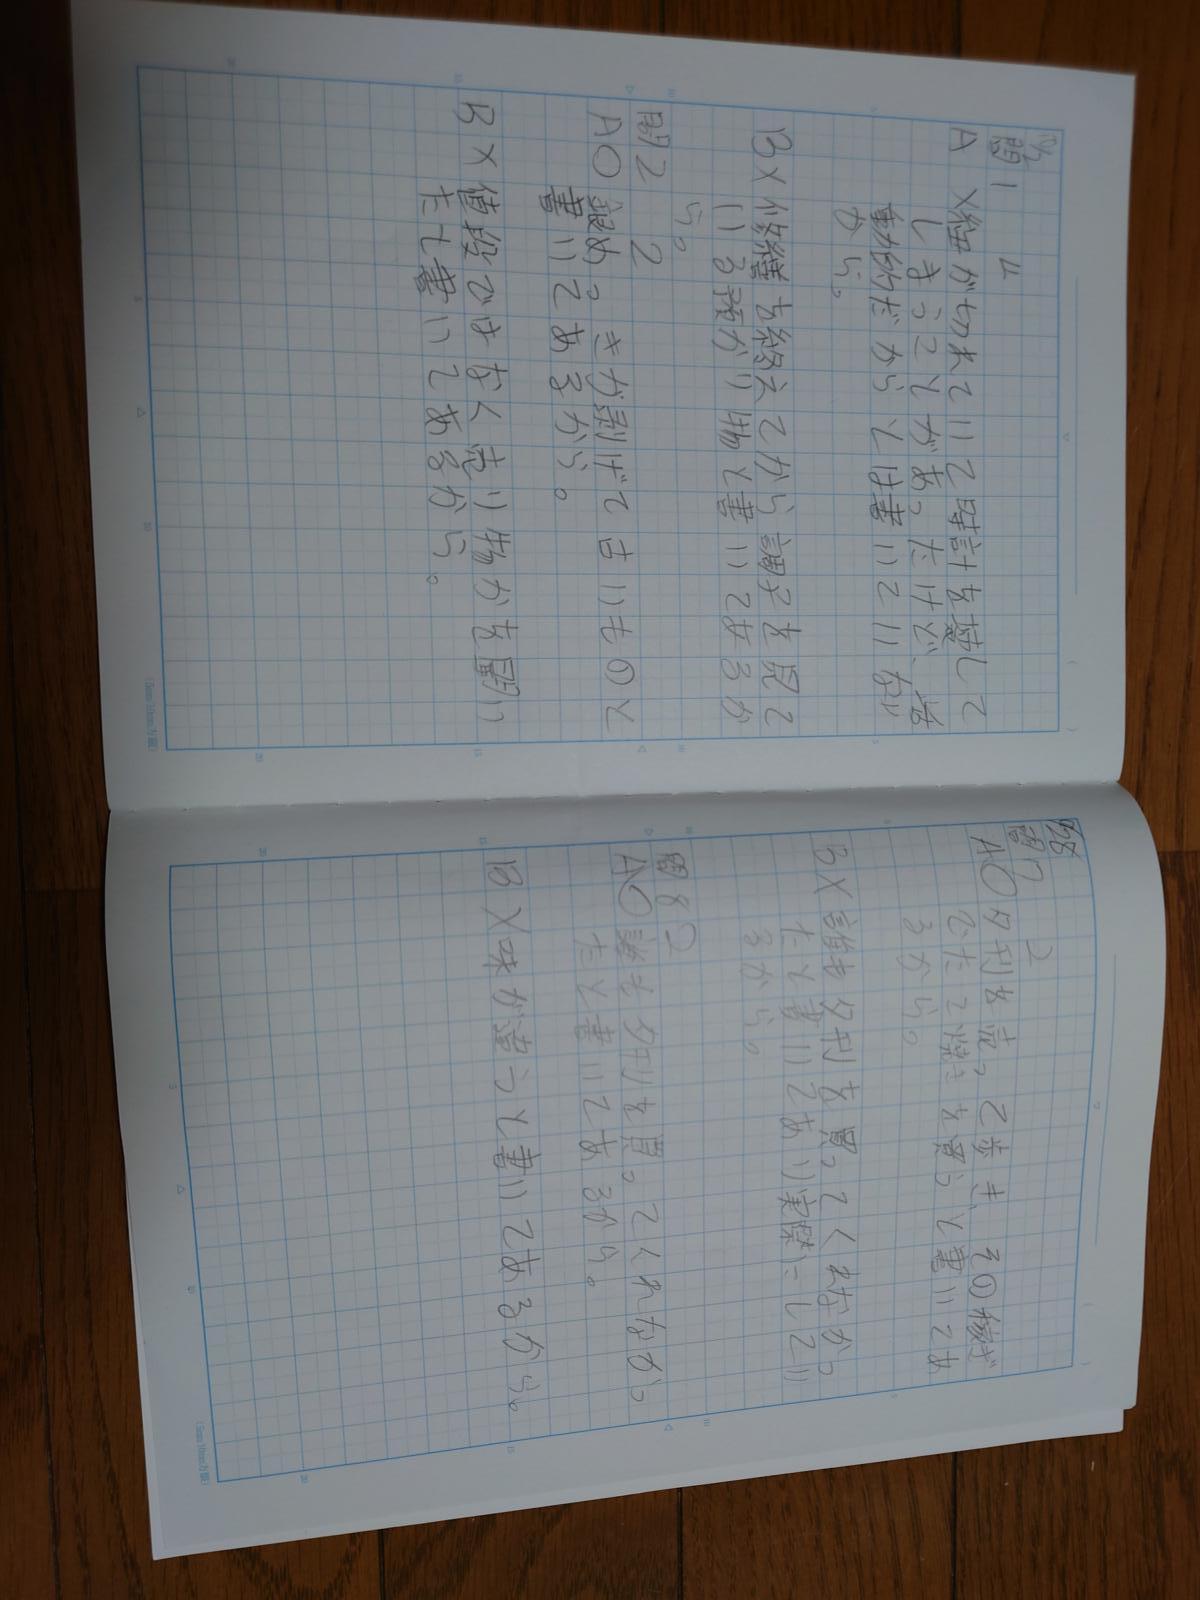 問1 4
A ×紐が切れていて時計を壊して
しまうことがあったけど、
動的だからとは書いていない
から。
B×修繕を終えてから調子を見て
いる預かり物と書いてあるか
ら。
問2 2
A○鍍めっきが剥げて古いものと
書いてあるから。
B×値段ではなく売り物かを聞い
たと書いてあるから。
問7 2
A○夕刊を売って歩き、その稼ぎ
るから。
B×誰も夕刊を買ってくれなかっ
たと書いてあり実際にしてい
るから。
問8 2
A○誰も夕刊を買ってくれなから
たと書いてあるから。
B ×味が違うと書いてあるから。